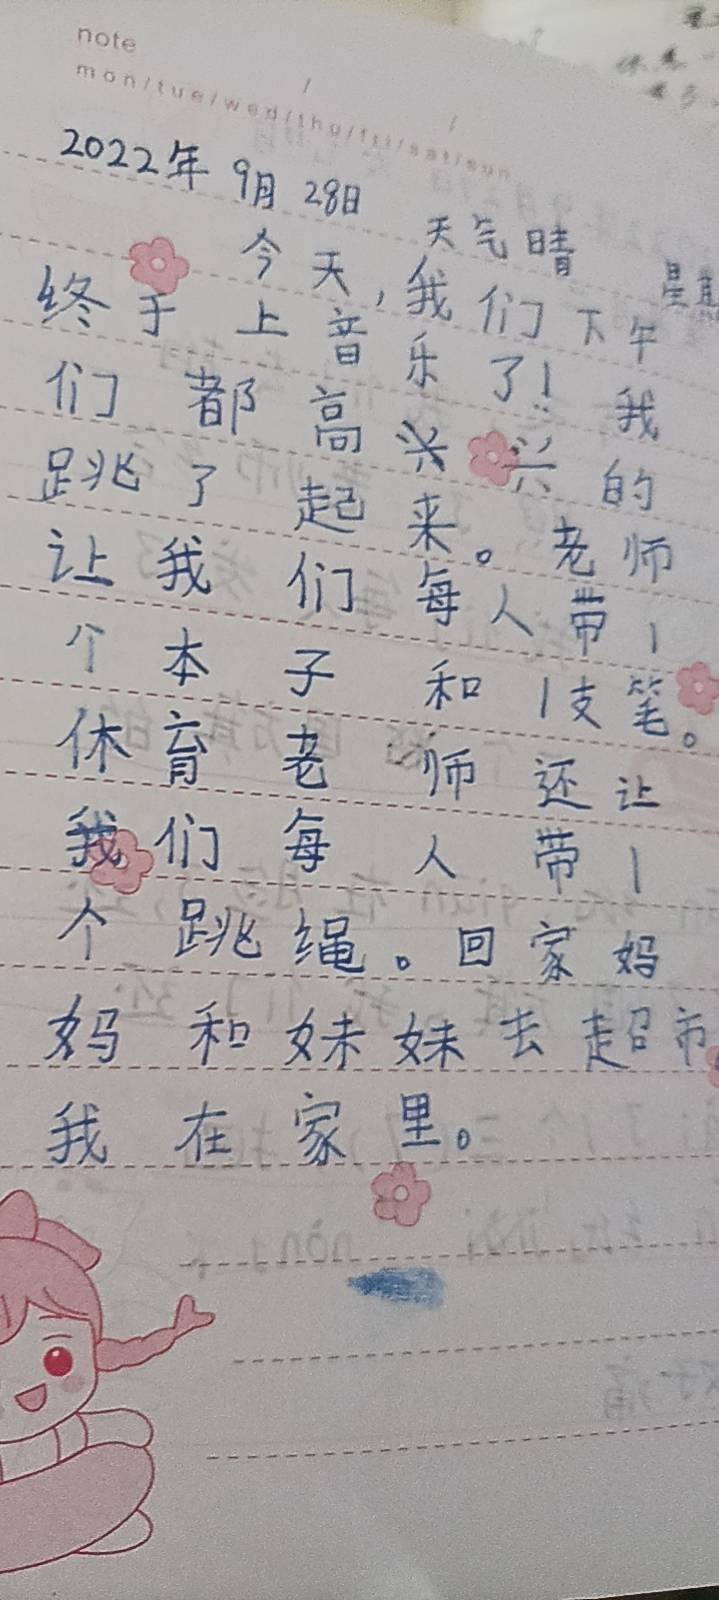 note
mon/tue/wed/thu/fri/sat/sun
2022年 9月 28日 天气晴 星期
今天,我们下午
终于上音乐了!我
们都高兴兴的
跳了起来。老师
让我们每人带1
个本子和1支笔。
体育老师还让
我们每人带1
个跳绳。回家妈
妈和妹妹去超市,
我在家里。